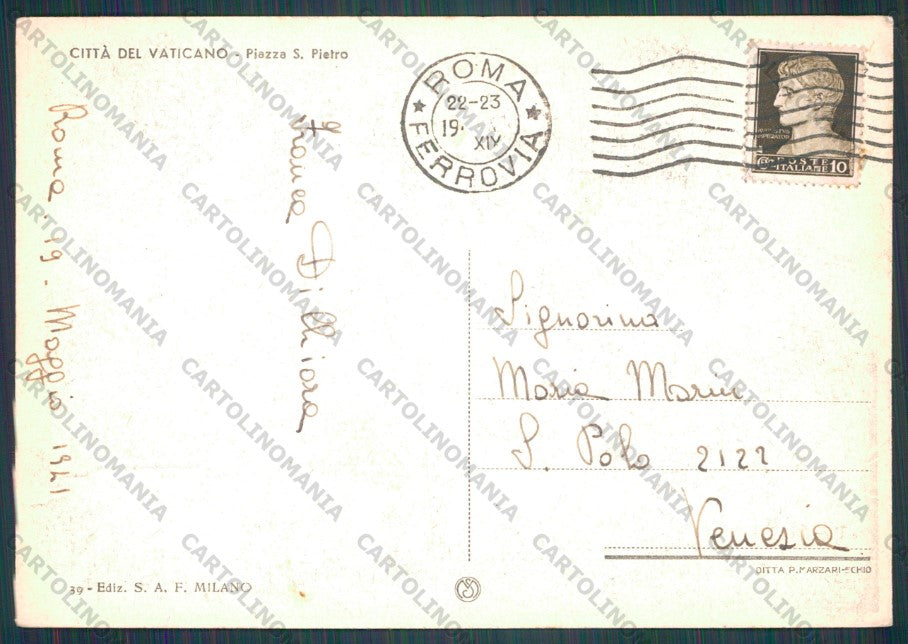 CITTÀ DEL VATICANO - Piazza S. Pietro
ROMA
22-23
19
XIX
FERROVIA
POSTE
ITALIANE 10
Roma 19 - Maggio 1941
Signorina
Maria Marin
S. Polo 2122
Venezia
DITTA P. MARZARI-SCHIO
39 - Ediz. S. A. F. MILANO
CARTOLINOMANIA